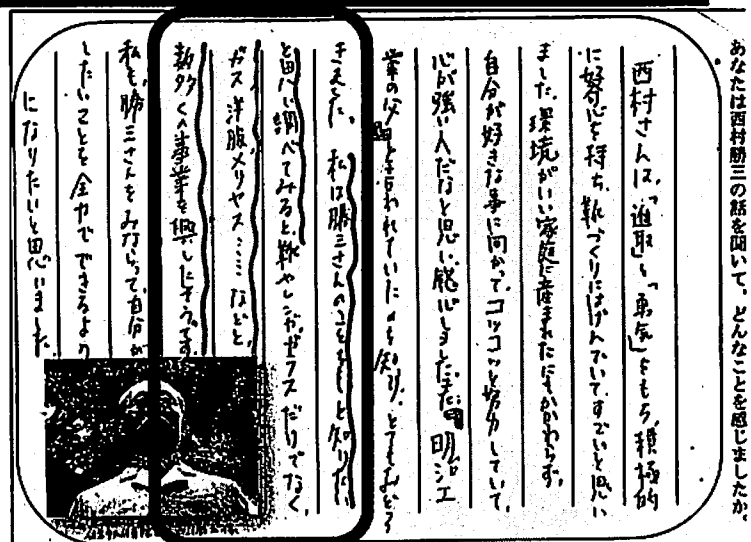 あなたは西村勝三の話を聞いて、どんなことを感じましたか。
西村さんは、「進取」と「勇気」をもち、積極的
に好心を持ち、靴づくりにはげんでいてすごいと思い
ました。環境がいい家庭に産まれたにもかかわらず、
自分が好きな事に向かって、コツコツと努力していて、
心が強い人だなと思い、感心しました。また、明治工
業の父と言われていたのも知り、とてもおどろ
きました。私は勝三さんのことをもっと知りたい
と思い調べてみると、靴やレンガ、ガラスだけでなく、
ガス洋服メリヤス などと、
数多くの事業を興したそうです。
私も、勝三さんをみならって、自分が
したいことを全力でできるよう
になりたいと思いました。